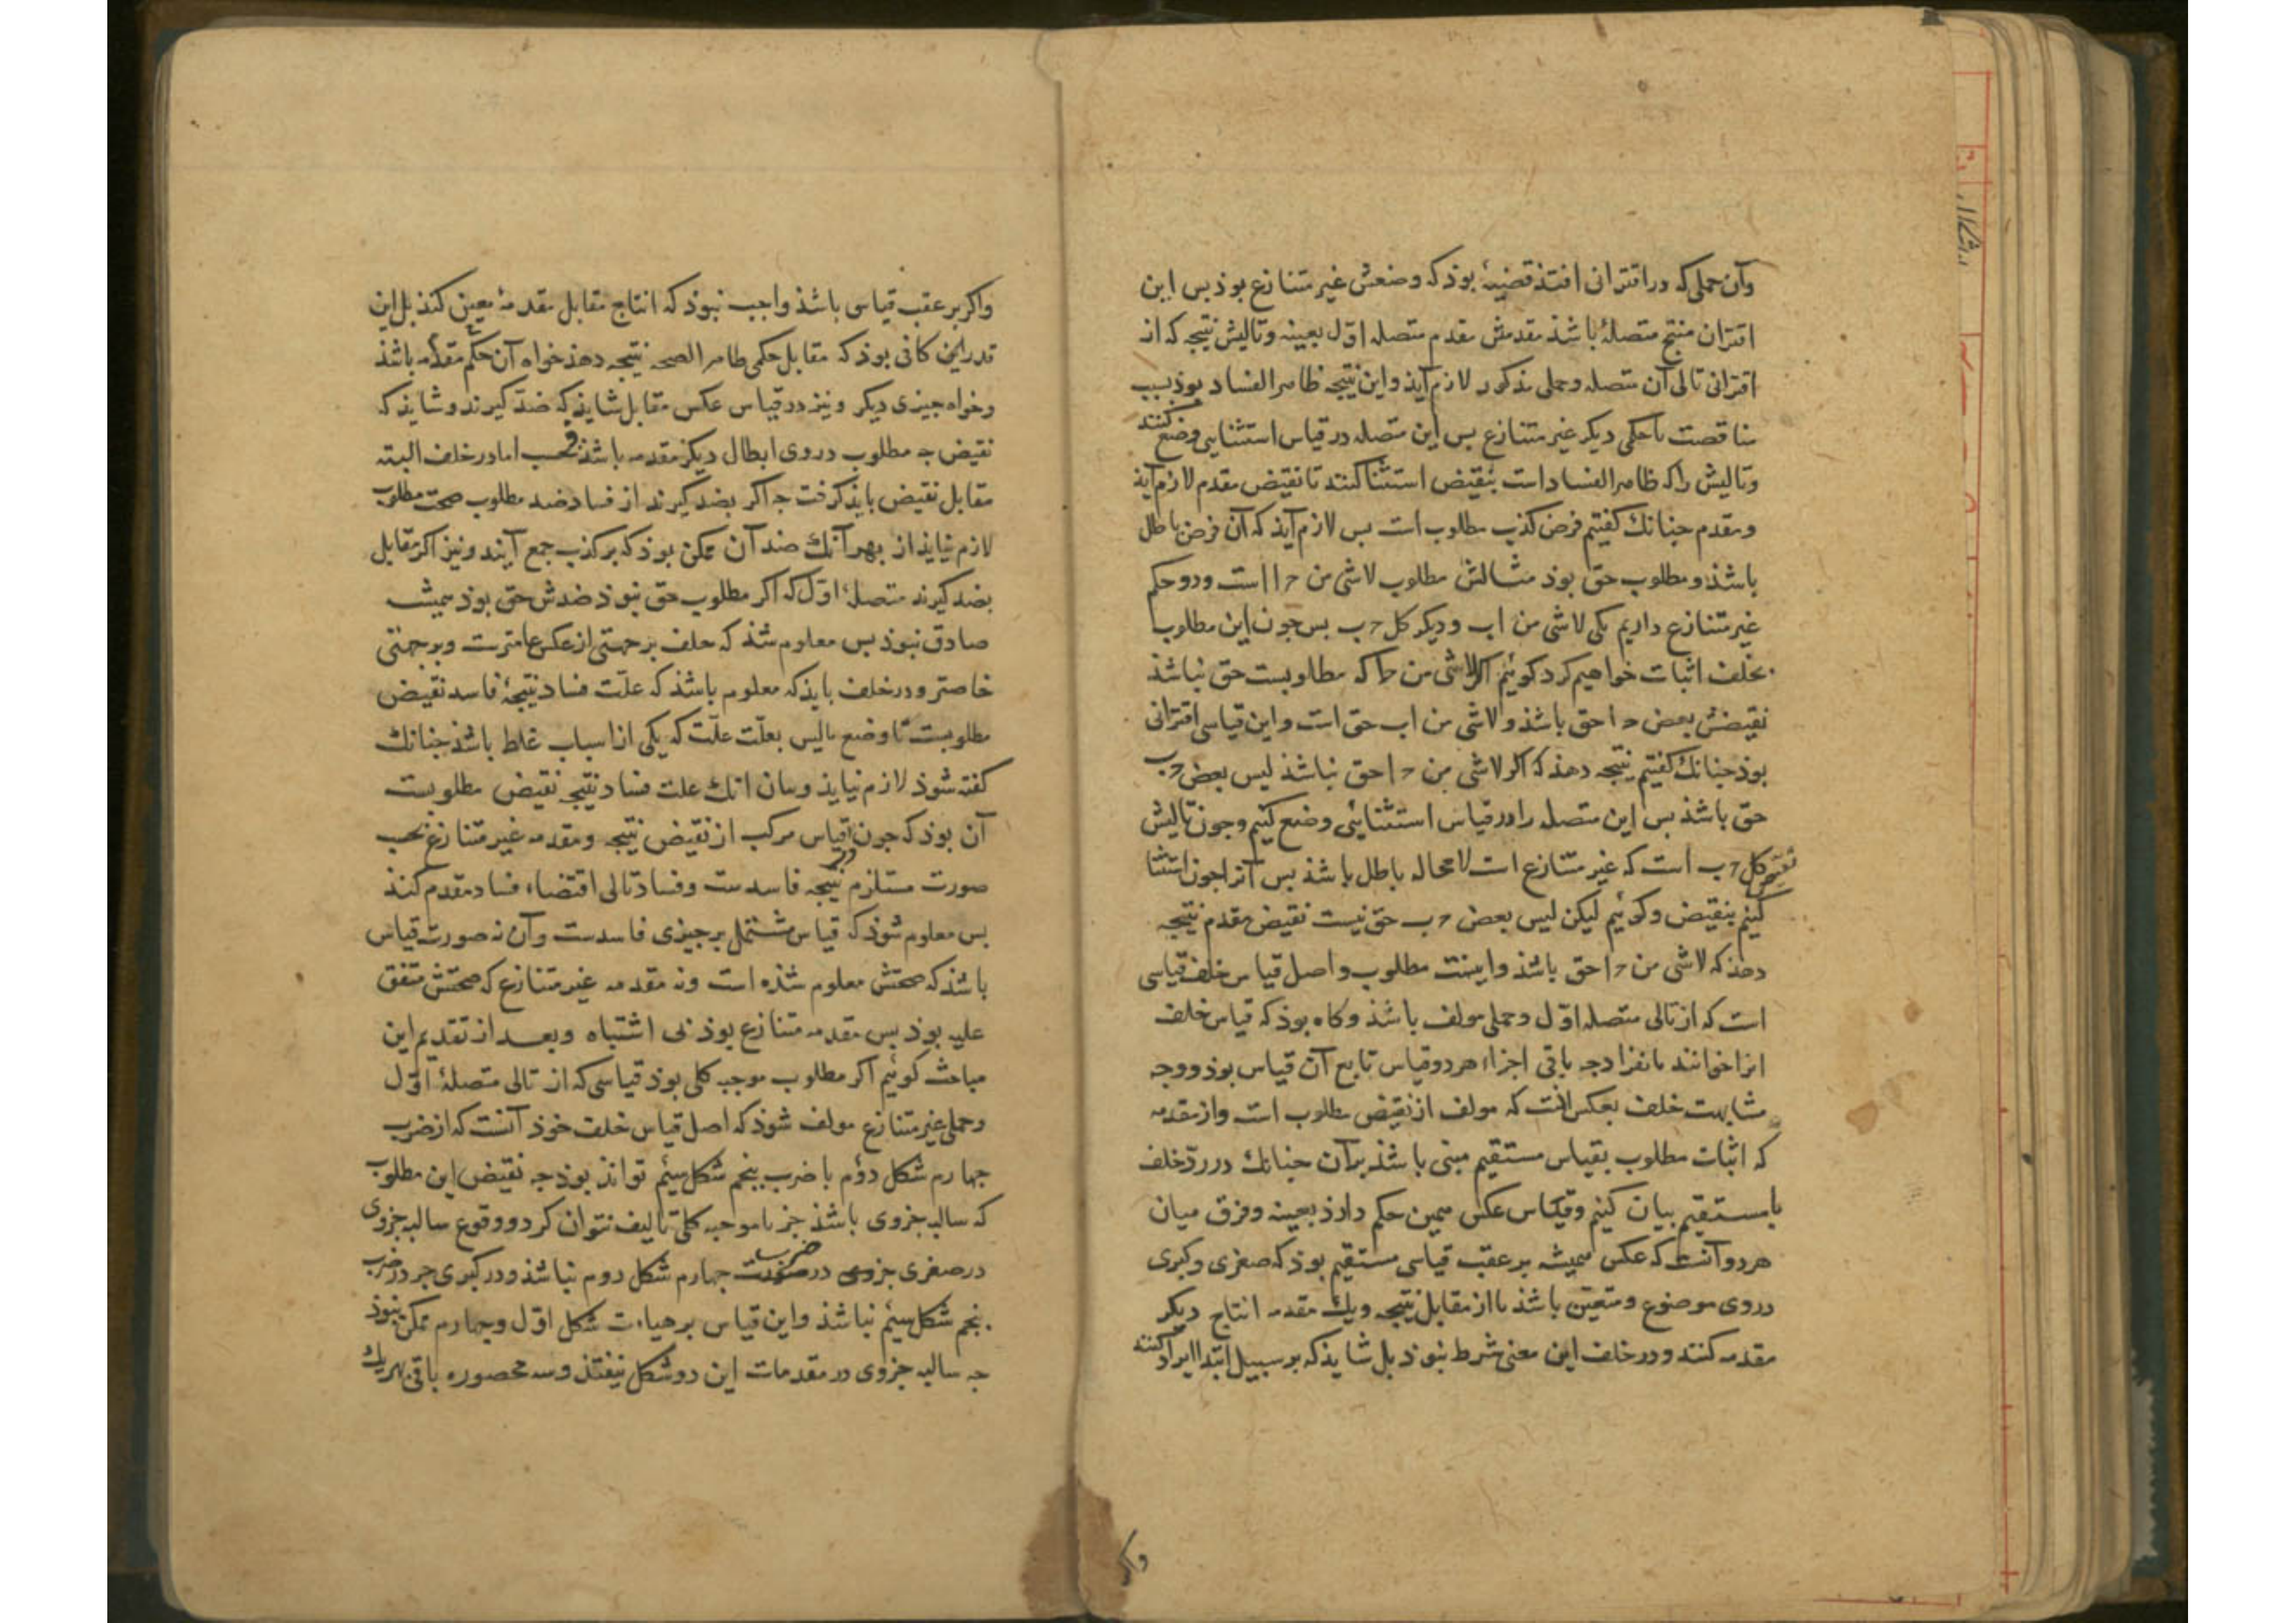 وآن حملی که در اقترانی افتذ قضیهٔ بوذ که وضعش غیر متنازع بوذ بس این
اقتران منتج متصلهٔ باشذ مقدمش مقدم متصله اوّل بعینه وتالیش نتیجه که از
اقترانی تالی آن متصله وحملی مذکور لازم آیذ واین نتیجه ظاهر الفساد بوذ بسبب
مناقضت با حکمی دیگر غیر متنازع بس این متصله در قیاس استثنایی وضع کنند
وتالیش را که ظاهر الفساد است بنقیض استثنا کنند تا نقیض مقدم لازم آیذ
ومقدم جنانك کفتیم فرض کذب مطلوب است بس لازم آیذ که آن فرض باطل
باشذ ومطلوب حق بوذ مثالش مطلوب لاشی من حـ ا است ودو حکم
غیر متنازع داریم یکی لاشی من اب ودیکر کل حـ ب بس جون این مطلوب
بخلف اثبات خواهیم کرد کوئیم اکر لاشی من حـ ا که مطلوبست حق نباشذ
نقیضش بعض حـ ا حق باشذ ولاشی من اب حق است واین قیاسی اقترانی
بوذ جنانك کفتیم نتیجه دهذ که اکر لاشی من حـ ا حق نباشذ لیس بعض حـ ب
حق باشذ بس این متصله را در قیاس استثنایی وضع کنیم وجون تالیش
نقیض کل حـ ب است که غیر متنازع است لامحاله باطل باشذ بس آنرا جون استثنا
کنیم بنقیض وکوئیم لیکن لیس بعض حـ ب حق نیست نقیض مقدم نتیجه
دهذ که لاشی من حـ ا حق باشذ واینست مطلوب واصل قیاس خلف قیاسی
است که از تالی متصله اوّل وحملی مولف باشذ وکاه بوذ که قیاس خلف
انرا خوانند بانفراد جه باقی اجزاء هر دو قیاس تابع آن قیاس بوذ ووجه
مشابهت خلف بعکس انست که مولف از نقیض مطلوب است واز مقدمه
که اثبات مطلوب بقیاس مستقیم مبنی باشذ بر آن جنانك در ردّ خلف
با مستقیم بیان کنیم وقیاس عکس همین حکم دارذ بعینه وفرق میان
هر دو آنست که عکس همیشه بر عقب قیاسی مستقیم بوذ که صغری وکبری
در وی موضوع ومتعین باشذ تا از مقابل نتیجه ویك مقدمه انتاج دیکر
مقدمه کنند ودر خلف این معنی شرط نبوذ بل شایذ که بر سبیل ابتدا ایراد کنند
واکر
واکر بر عقب قیاسی باشذ واجب نبوذ که انتاج مقابل مقدمهٔ معین کنذ بل این
قدر این کافی بوذ که مقابل حکمی ظاهر الصحه نتیجه دهذ خواه آن حکم مقدمه باشذ
وخواه جیزی دیکر ونیز در قیاس عکس مقابل شایذ که ضدّ کیرند وشایذ که
نقیض جه مطلوب در وی ابطال دیکر مقدمه باشذ وحسب اما در خلف البته
مقابل نقیض بایذ کرفت جه اکر بضد کیرند از فساد ضد مطلوب صحت مطلوب
لازم نیایذ از بهر آنك ضد آن ممکن بوذ که بر کذب جمع آیند ونیز اکر مقابل
بضد کیرند متصلهٔ اوّل که اکر مطلوب حق نبوذ ضدش حق بوذ همیشه
صادق نبوذ بس معلوم شذ که خلف بر جهتی از عکس عامترست وبر جهتی
خاصتر ودر خلف بایذ که معلوم باشذ که علّت فساد نتیجهٔ فاسد نقیض
مطلوبست تا وضع مالیس بعلّت علّت که یکی از اسباب غلط باشذ جنانك
کفته شوذ لازم نیایذ وبیان انك علت فساد نتیجه نقیض مطلوبست
آن بوذ که جون قیاس مرکب از نقیض نتیجه ومقدمه غیر متنازع بحسب
صورت مستلزم نتیجه فاسدست وفساد تالی اقتضاء فساد مقدم کنذ
بس معلوم شوذ که قیاس مشتمل بر جیزی فاسدست وآن نه صورت قیاس
باشذ که صحتش معلوم شذه است ونه مقدمه غیر متنازع که صحتش متفق
علیه بوذ بس مقدمه متنازع بوذ بی اشتباه وبعد از تقدیم این
مباحث کوئیم اکر مطلوب موجبه کلی بوذ قیاسی که از تالی متصلهٔ اوّل
وحملی غیر متنازع مولف شوذ که اصل قیاس خلف خوذ آنست که از ضرب
جهارم شکل دوّم یا ضرب بنجم شکل سیّم تواند بوذ جه نقیض این مطلوب
که سالبه جزوی باشذ جز با موجبه کلی تالیف نتوان کرد ووقوع سالبه جزوی
در صغری جزوی در ضرب جهارم شکل دوم نباشذ ودر کبری جز در ضرب
بنجم شکل سیّم نباشذ واین قیاس بر هیات شکل اوّل وجهارم ممکن نبوذ
جه سالبه جزوی در مقدمات این دو شکل نیفتذ وسه محصوره باقی بهریك